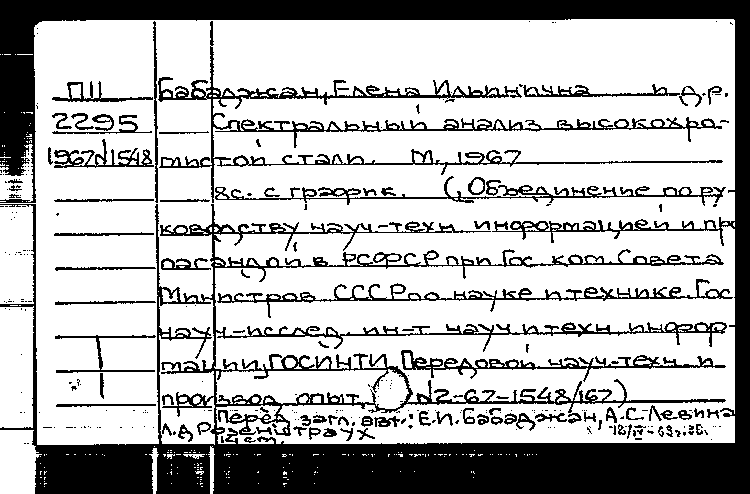 П11 Бабаджан, Елена Ильинична и др.
2295 Спектральный анализ высокохро-
1967/1548 мистой стали. М., 1967
8с. с график. (Объединение по ру-
ководству науч-техн. информацией и про
пагандой в РСФСР при Гос. ком. Совета
Министров СССР по науке и технике. Гос
науч-исслед. ин-т науч и техн. инфор-
мации, ГОСИНТИ, Передовой науч-техн. и
производ. опыт. №2-67-1548/167)
Перед загл. авт.: Е.И. Бабаджан, А.С. Левина
Л.Д Розенштраух